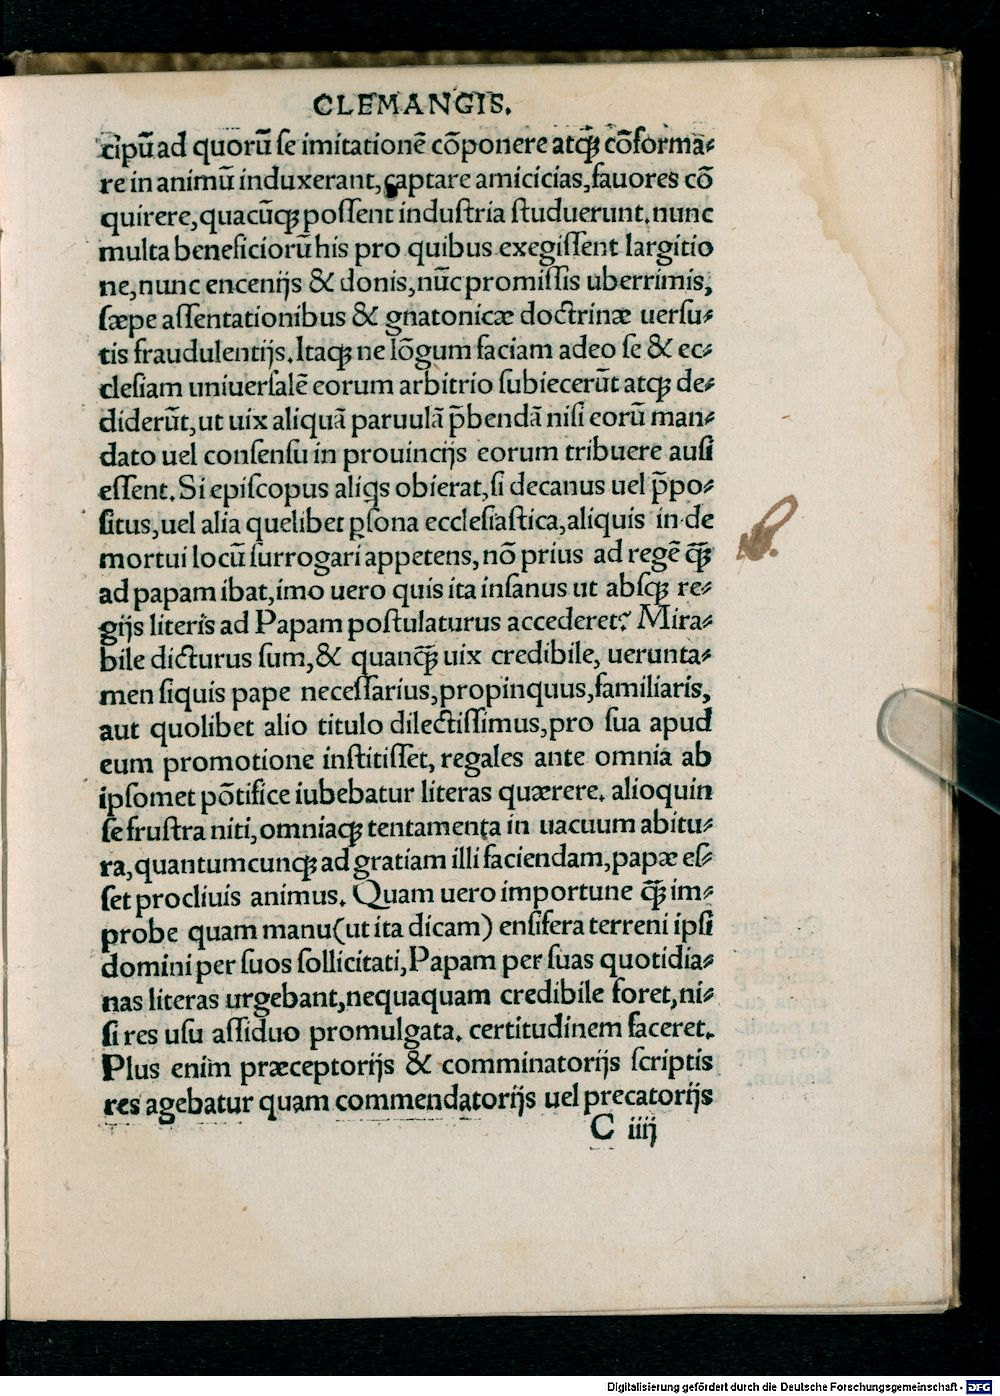 CLEMANGIS.
cipũ ad quorũ se imitationẽ cõponere atq̃ꝫ cõforma⸗
re in animũ induxerant, captare amicicias, fauores cõ
quirere, quacũqꝫ possent industria studuerunt. nunc
multa beneficiorũ his pro quibus exegissent largitio
ne, nunc encenijs & donis, nũc promissis uberrimis,
sæpe assentationibus & gnatonicæ doctrinæ uersu⸗
tis fraudulentijs. Itaqꝫ ne lõgum faciam adeo se & ec⸗
clesiam uniuersalẽ eorum arbitrio subiecerũt atqꝫ de⸗
diderũt, ut uix aliquã paruulã p̃bendã nisi eorũ man⸗
dato uel consensu in prouincijs eorum tribuere ausi
essent. Si episcopus aliqs obierat, si decanus uel p̃po⸗
situs, uel alia quelibet ꝑsona ecclesiastica, aliquis in de
mortui locũ surrogari appetens, nõ prius ad regẽ q̃ꝫ
ad papam ibat, imo uero quis ita insanus ut absqꝫ re⸗
gijs literis ad Papam postulaturus accederet? Mira⸗
bile dicturus sum, & quanq̃ꝫ uix credibile, uerunta⸗
men siquis pape necessarius, propinquus, familiaris,
aut quolibet alio titulo dilectissimus, pro sua apud
eum promotione institisset, regales ante omnia ab
ipsomet põtifice iubebatur literas quærere. alioquin
se frustra niti, omniaqꝫ tentamenta in uacuum abitu⸗
ra, quantumcunqꝫ ad gratiam illi faciendam, papæ es⸗
set procliuis animus. Quam uero importune q̃ꝫ im⸗
probe quam manu (ut ita dicam) ensifera terreni ipsi
domini per suos sollicitati, Papam per suas quotidia⸗
nas literas urgebant, nequaquam credibile foret, ni⸗
si res usu assiduo promulgata. certitudinem faceret.
Plus enim præceptorijs & comminatorijs scriptis
res agebatur quam commendatorijs uel precatorijs
C iiij
Digitalisierung gefördert durch die Deutsche Forschungsgemeinschaft - DFG